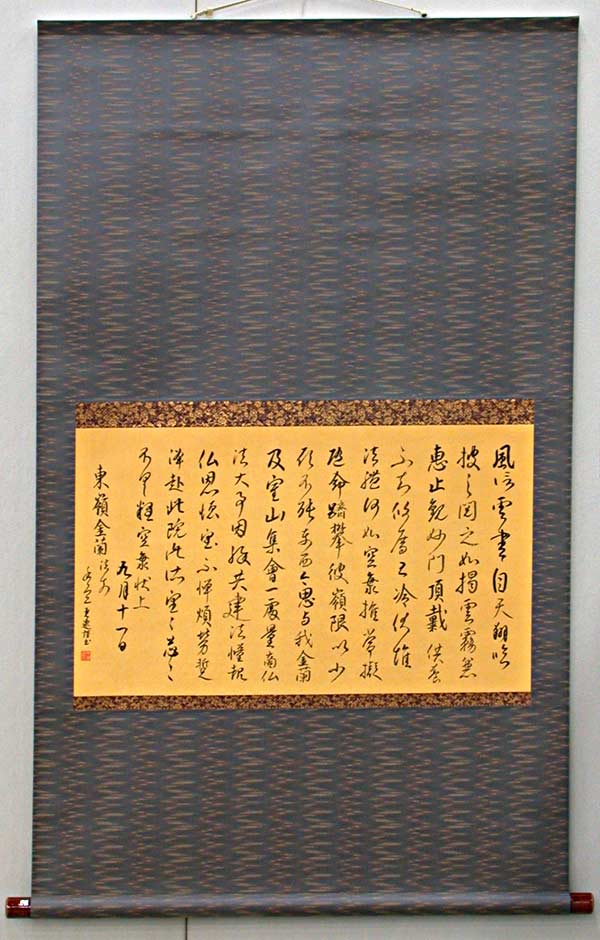 風信雲書自天翔臨
披之閲之如揭雲霧兼
恵止観妙門頂戴供養
不知攸厝已冷伏惟
法體何如空海推常擬
随命躋攀彼嶺限以少
願不能東西今思与我金蘭
及室山集會一處量商仏
法大事因縁共建法幢報
仏恩徳望不憚煩勞蹔
降赴此院此所望々忩々
不具釋空海状上
九月十一日
東嶺金蘭 法前